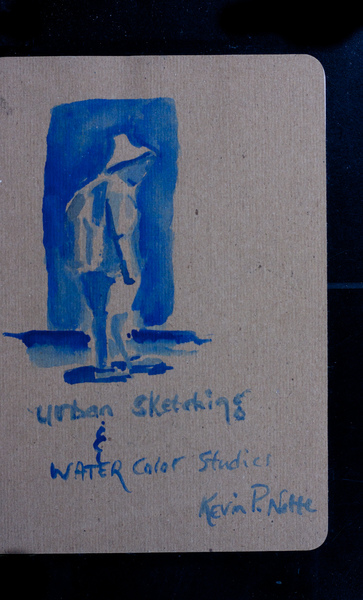 Urban Sketching
&
WATER Color Studies
Kevin P. Notte